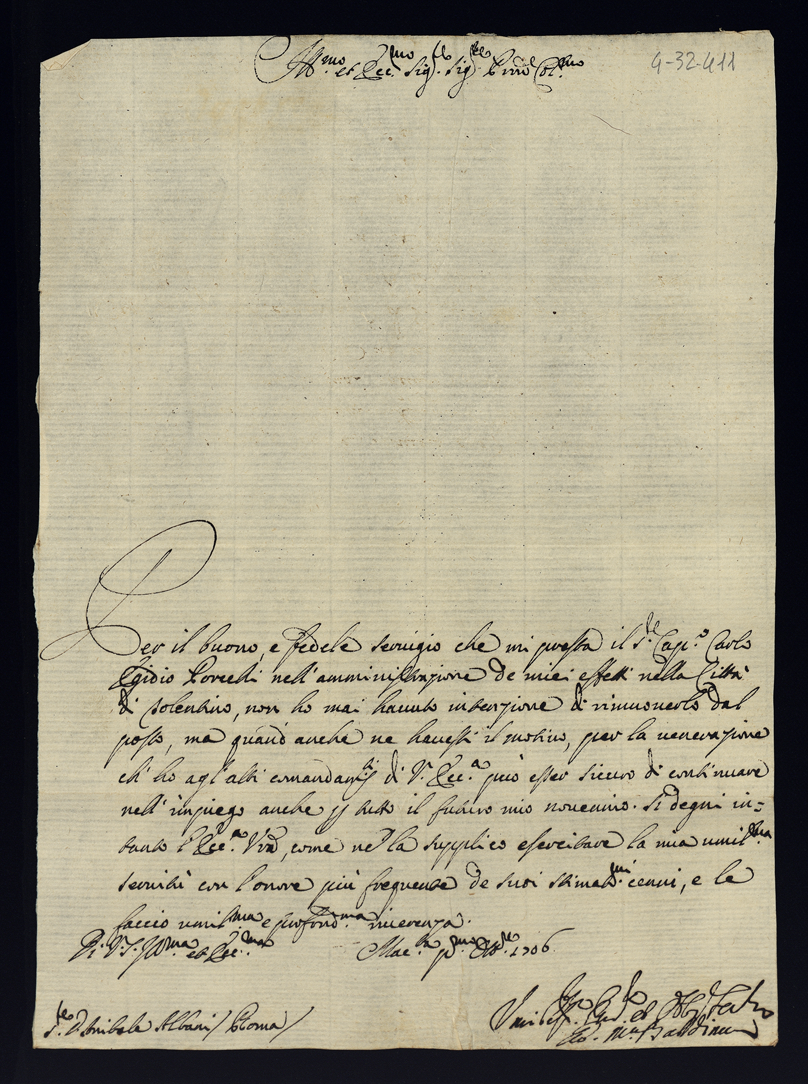 Ill.mo et Ecc.mo Sig.r Sig.r P'ron Col.mo
4-32-411
Per il buono, e fedele servigio che mi presta il S.r Cap.o Carlo
Egidio Porechi nell'amministrazione de miei effetti nella Città
di Tolentino, non ho mai havuto intenzione di rimuoverlo dal
posto, ma quand'anche ne havessi il motivo, per la venerazione
ch'ho agl'alti comandam.ti di V. Ecc.a può esser sicuro di continuare
nell'impiego anche p tutto il futuro mio novennio. Si degni in=
tanto l'Ecc.a Vra, come ne la supplico esercitare la mia umil.ma
servitù con l'onore più frequente de suoi stimat.mi cenni, e le
faccio umil.ma e profond.ma riverenza.
Di V.S. Ill.ma et Ecc.ma Mac.a p.mo Ott.re 1706
S.r D. Anibale Albani / Roma /
Umiliss. Dev. et Obl. Serv.